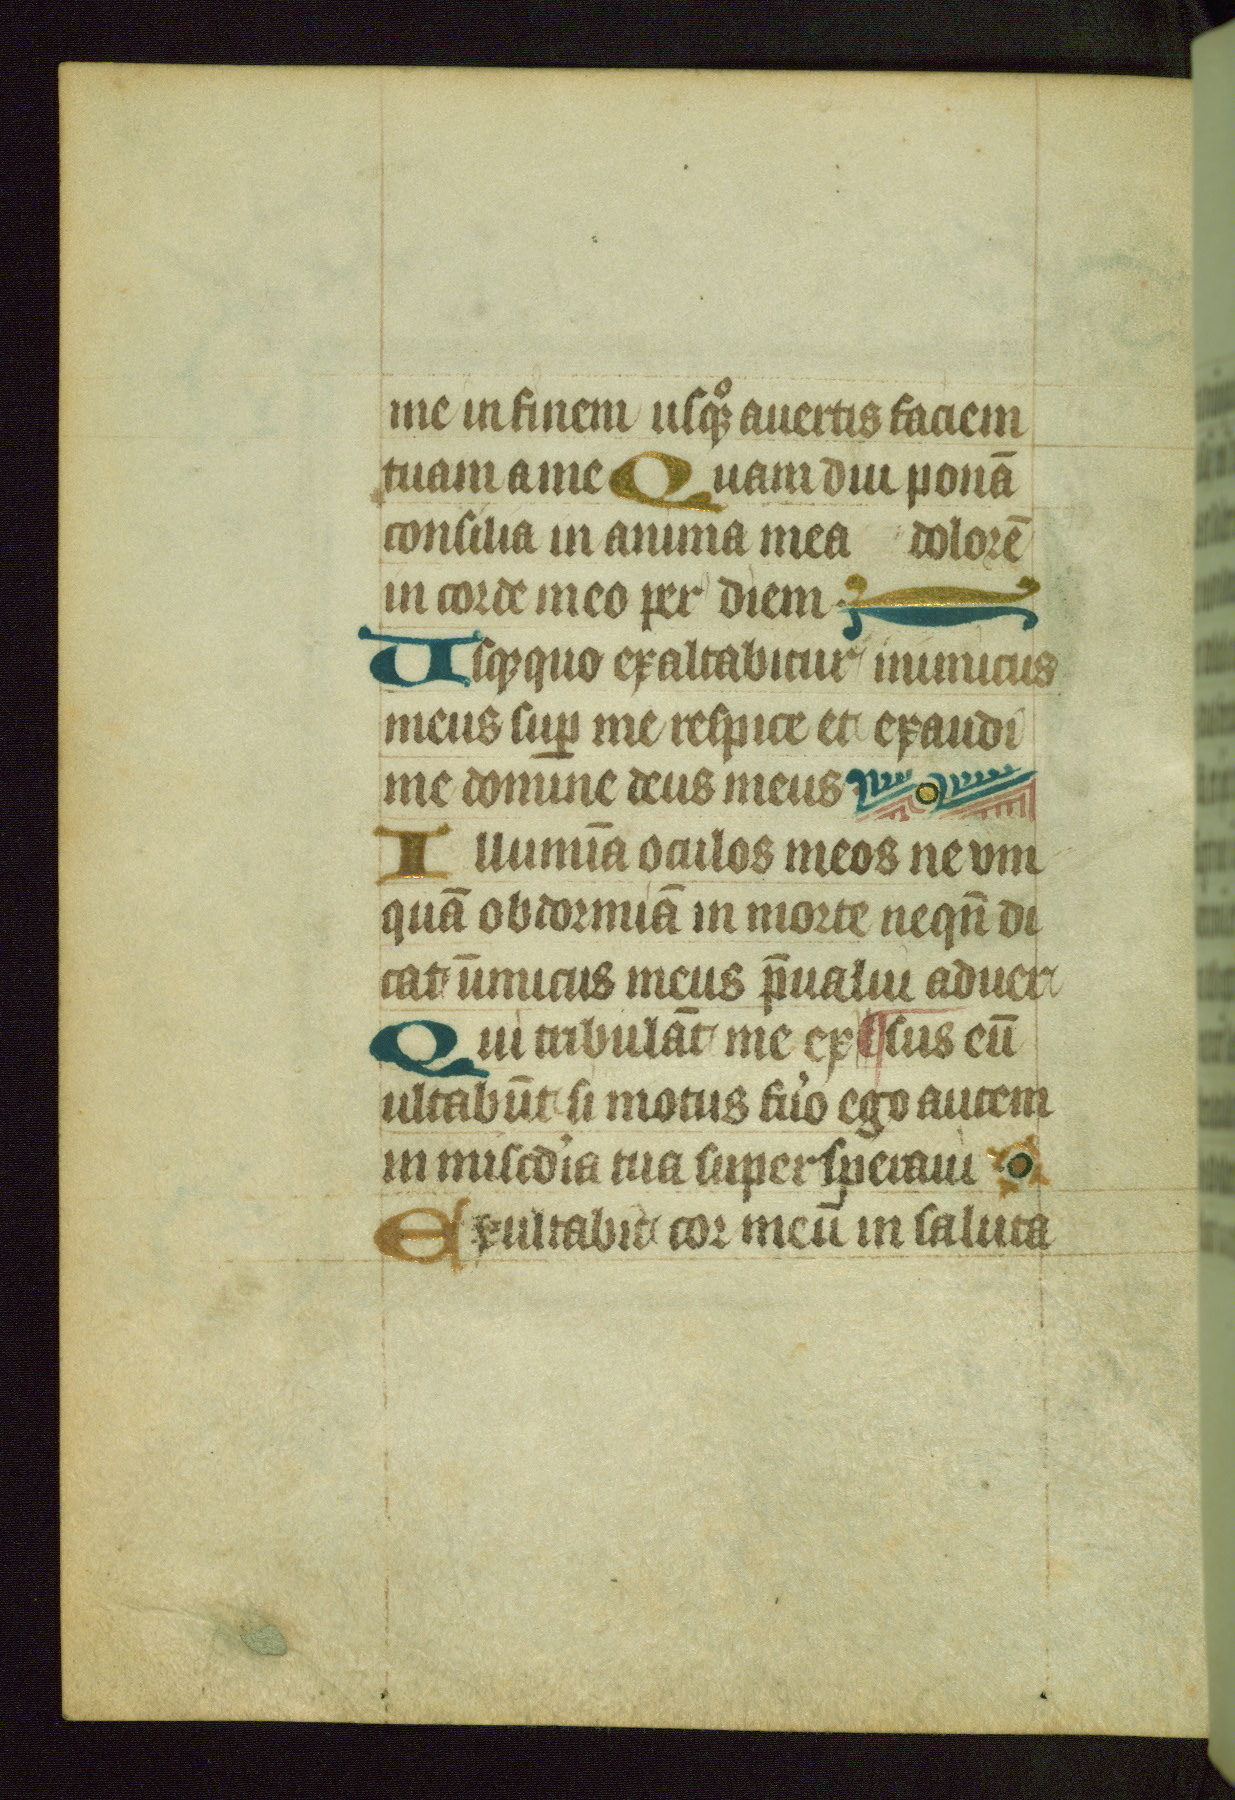 me in finem usq̨ꝫ° auertis faciem
tuam a me Quam diu ponā
consilia in anima mea dolorē
in corde meo per diem
Usqꝫquo exaltabitur inimicus
meus suꝑ me respice et exaudi
me domine deus meus
Illumīa oculos meos ne vm
quā obdormiā in morte neqn̄ di
cat īimicus meus p̄ualui aduer
Qui tribulāt me ex ¶ sus eū
ultabūt si motus fu'o ego autem
in misc̄d'ia tua super speraui
Exultabit cor meū in saluta